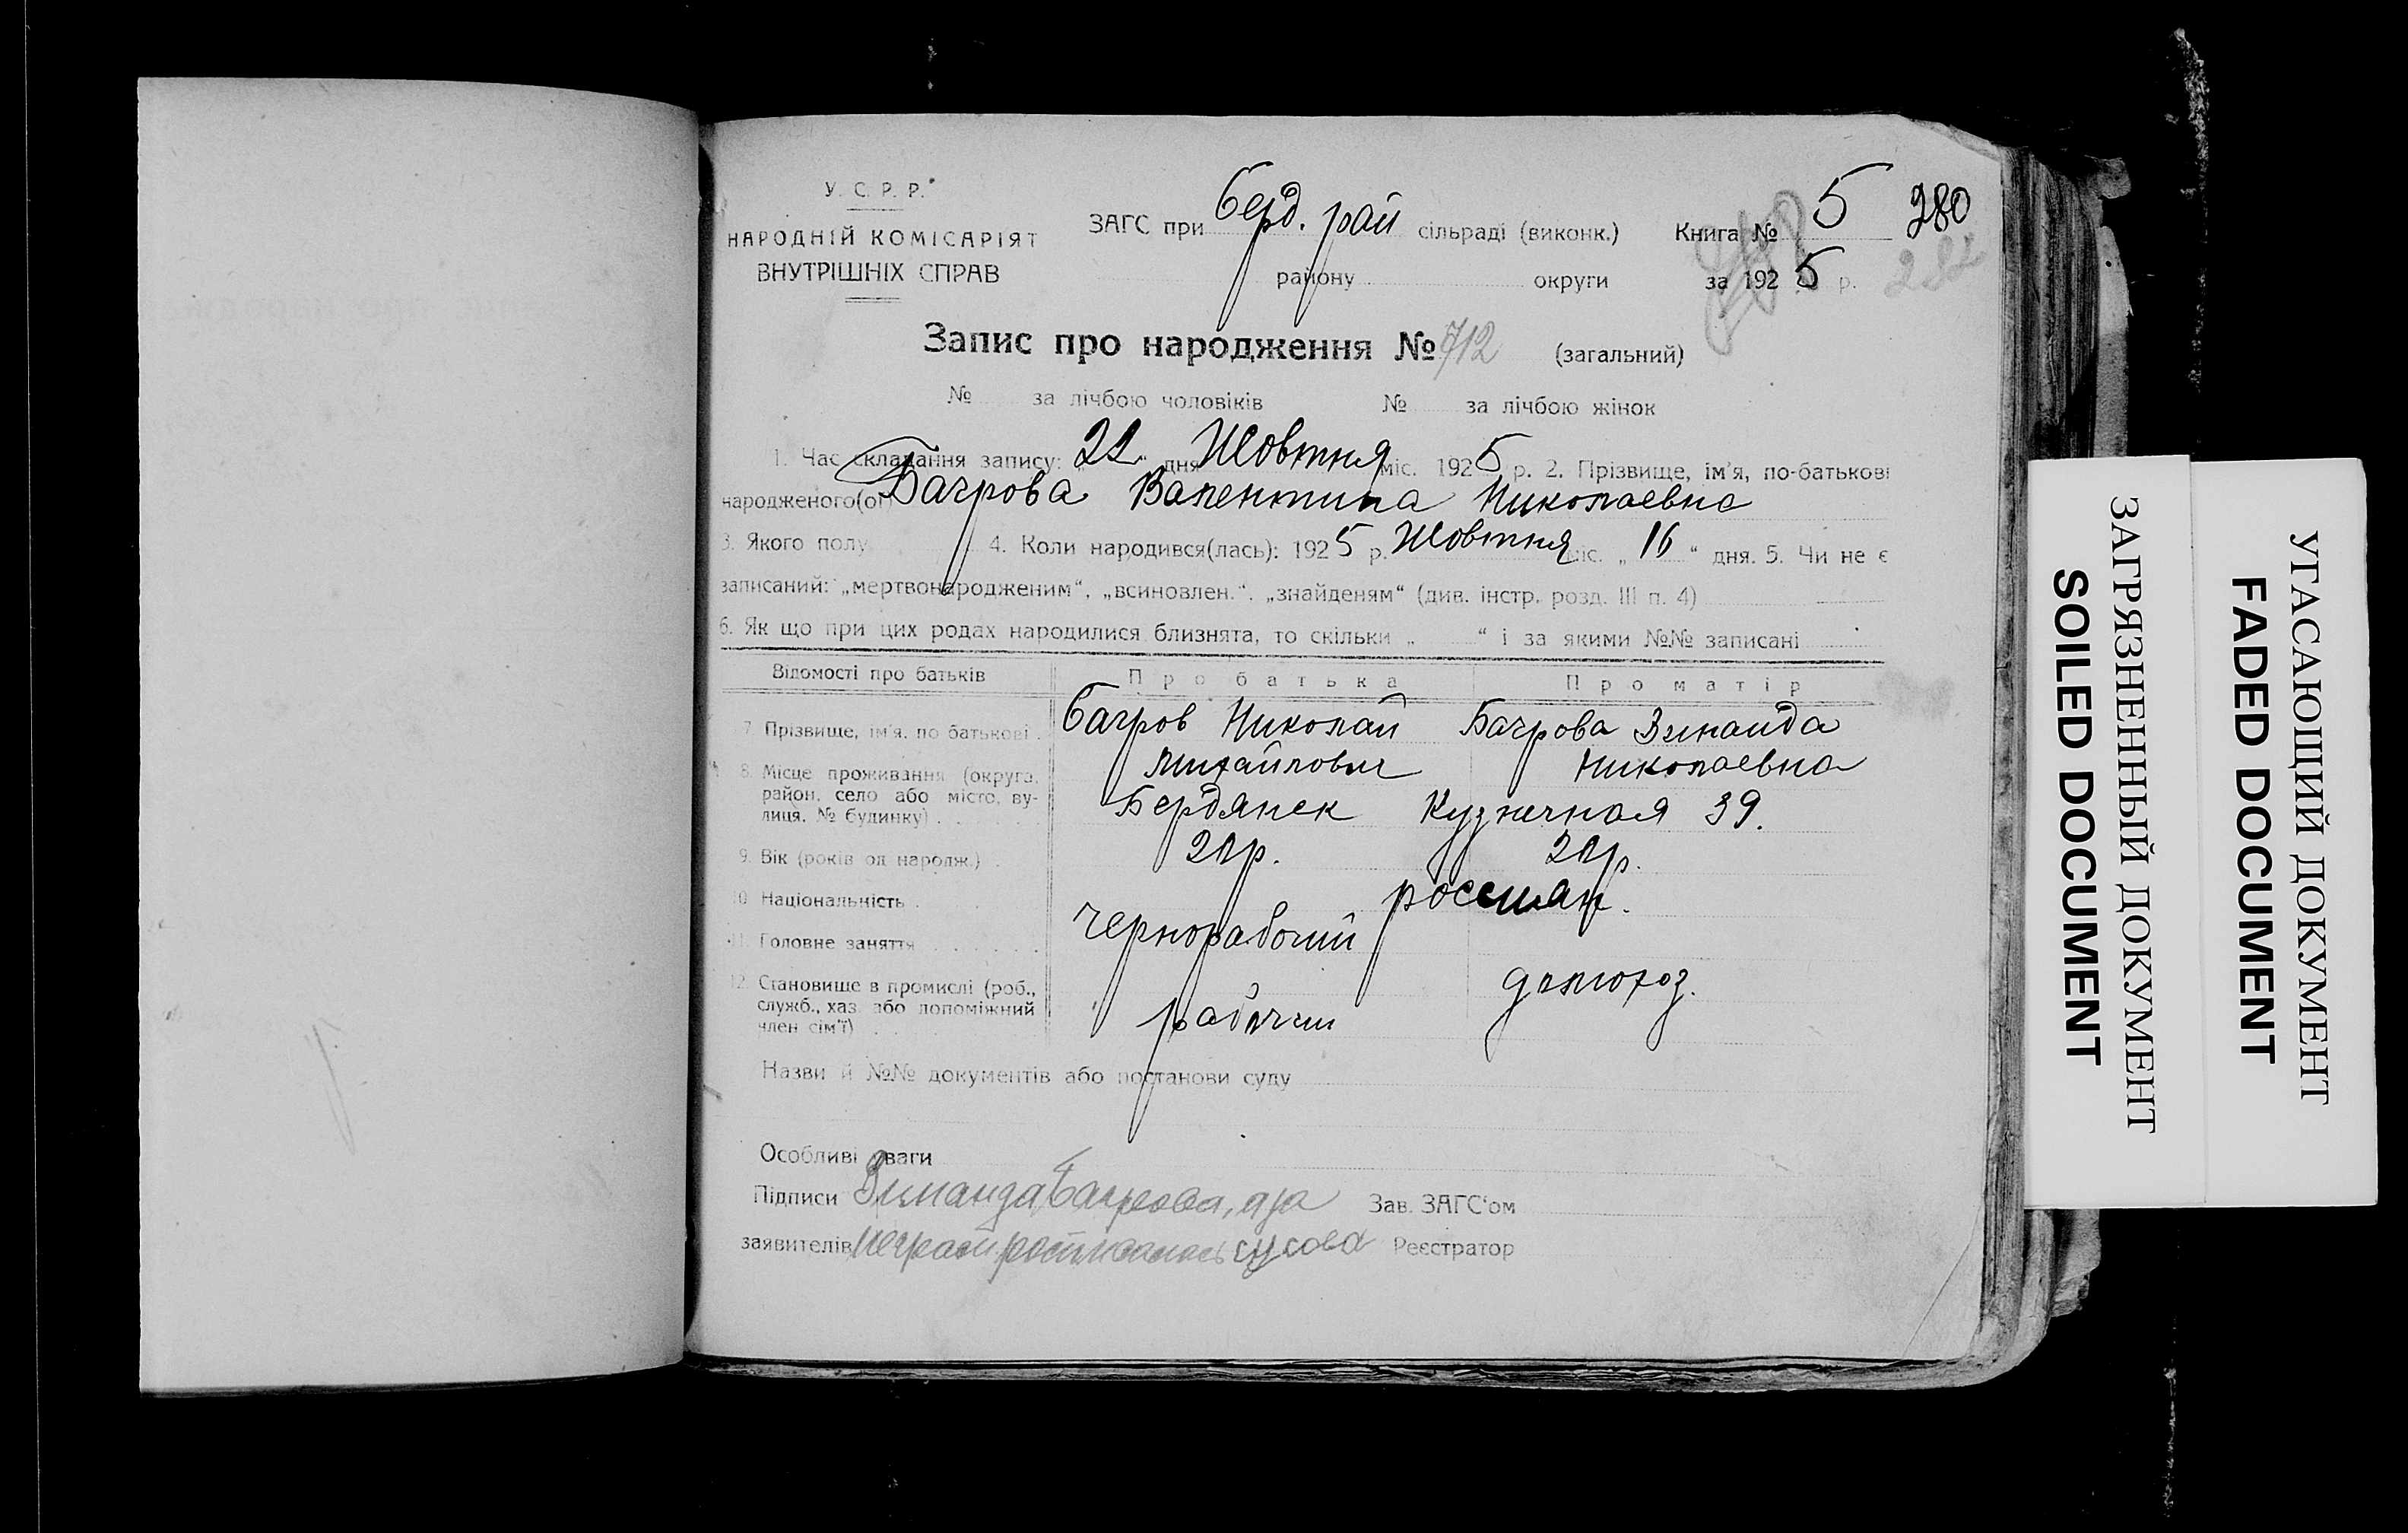 У. С. Р. Р.
НАРОДНІЙ КОМІСАРІЯТ
ВНУТРІШНІХ СПРАВ
ЗАГС при Берд. рай сільраді (виконк.) Книга № 5 280
району округи за 1925 р. 282
Запис про народження № 712 (загальний)
№ за лічбою чоловіків № за лічбою жінок
1. Час складання запису: „22“ дня Жовтня міс. 1925 р. 2. Прізвище, ім'я, по-батькові
народженого(ої) Багрова Валентина Николаевна
3. Якого полу 4. Коли народився(лась): 1925 р. Жовтня міс. „16“ дня. 5. Чи не є
записаний: „мертвонародженим“, „всиновлен.“, „знайденям“ (див. інстр. розд. III п. 4)
6. Як що при цих родах народилися близнята, то скільки „ “ і за якими №№ записані
Відомості про батьків Про батька Про матір
7. Прізвище, ім'я, по батькові Багров Николай Михайлович Багрова Зинаида Николаевна
8. Місце проживання (округа,
район, село або місто, ву-
лиця, № будинку) Бердянск Кузнечная 39.
9. Вік (років од народж.)
10. Національність россиян.
11. Головне заняття чернорабочий
12. Становище в промислі (роб.,
служб., хаз. або допоміжний
член сім'ї) рабочий домохоз.
Назви й №№ документів або постанови суду
Особливі уваги
Підписи Зинаида Багрова, а за Зав. ЗАГС'ом
заявителів неграм. расписалась Реєстратор
ЗАГРЯЗНЕННЫЙ ДОКУМЕНТ
SOILED DOCUMENT
УГАСАЮЩИЙ ДОКУМЕНТ
FADED DOCUMENT